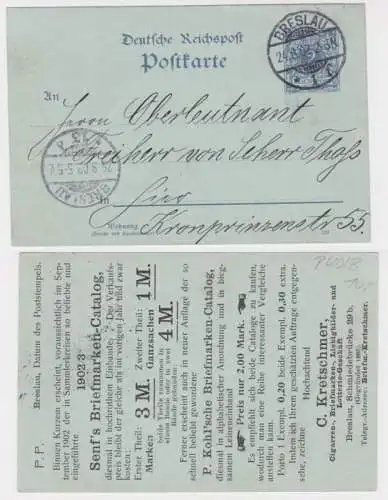 Deutsche Reichspost
Postkarte
BRESLAU
An
Herrn Oberleutnant
Freiherr von Scherr Thoss
BRESLAU
in
Hier
Wohnung
Kronprinzenstr 55.
P. P.
Breslau, Datum des Poststempels.
Binnen Kurzem erscheint voraussichtlich im Sep-
tember 1902 der in Sammlerkreisen so beliebte und
eingeführte
1902/3
Senf's Briefmarken-Catalog,
diesmal in hochrothem Einbande, 2. Der Verkaufs-
preis bleibt der gleiche als im vorigen Jahr und zwar
Erster Theil: Marken 3 M. Zweiter Theil: Ganzsachen 1 M.
beide Theile zusammen in
Bände gebunden 4 M.
Ferner erscheint ebenfalls in neuer Auflage der so
schnell beliebt gewordene
P. Kohl'sche Briefmarken-Catalog,
diesmal in alphabetischer Anordnung und in bieg-
samem Leineneinband
Preis nur 2,00 Mark.
Es empfiehlt sich, beide Cataloge zu kaufen,
wodurch man eine solche interessanter Vergleiche
anstellen kann.
Porto 1 Exempl. 0,20 beide Exempl. 0,30 extra.
Indem ich Ihren geschätzten Aufträge entgegen-
sehe, zeichne
Hochachtend
C. Kretschmer,
Cigarren-, Briefmarken-, Liebigbilder- und
Lotterie-Geschäft
Breslau, Schmiedebrücke 29b,
Telegr.-Adresse: Briefm. Kretschmer.